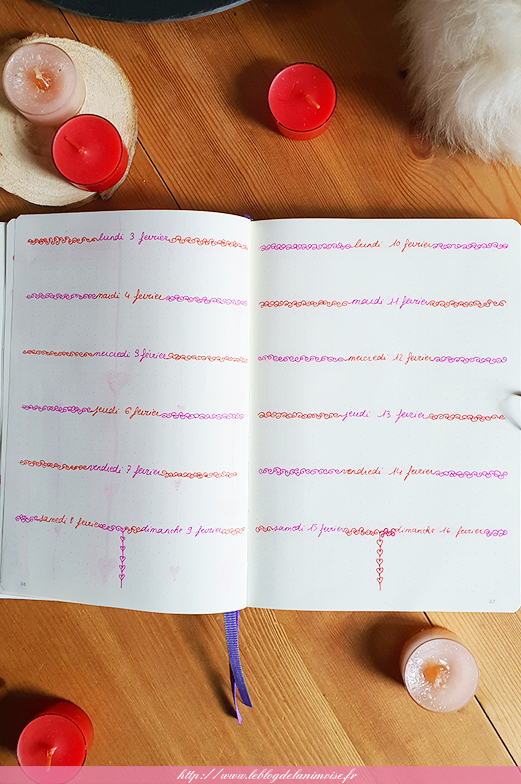 lundi 3 fevrier
mardi 4 fevrier
mercredi 5 février
jeudi 6 fevrier
vendredi 7 fevrier
samedi 8 fevrier
dimanche 9 fevrier
36
lundi 10 fevrier
mardi 11 fevrier
mercredi 12 fevrier
jeudi 13 fevrier
vendredi 14 fevrier
samedi 15 fevrier
dimanche 16 fevrier
37
http://www.leblogdelanimoise.fr